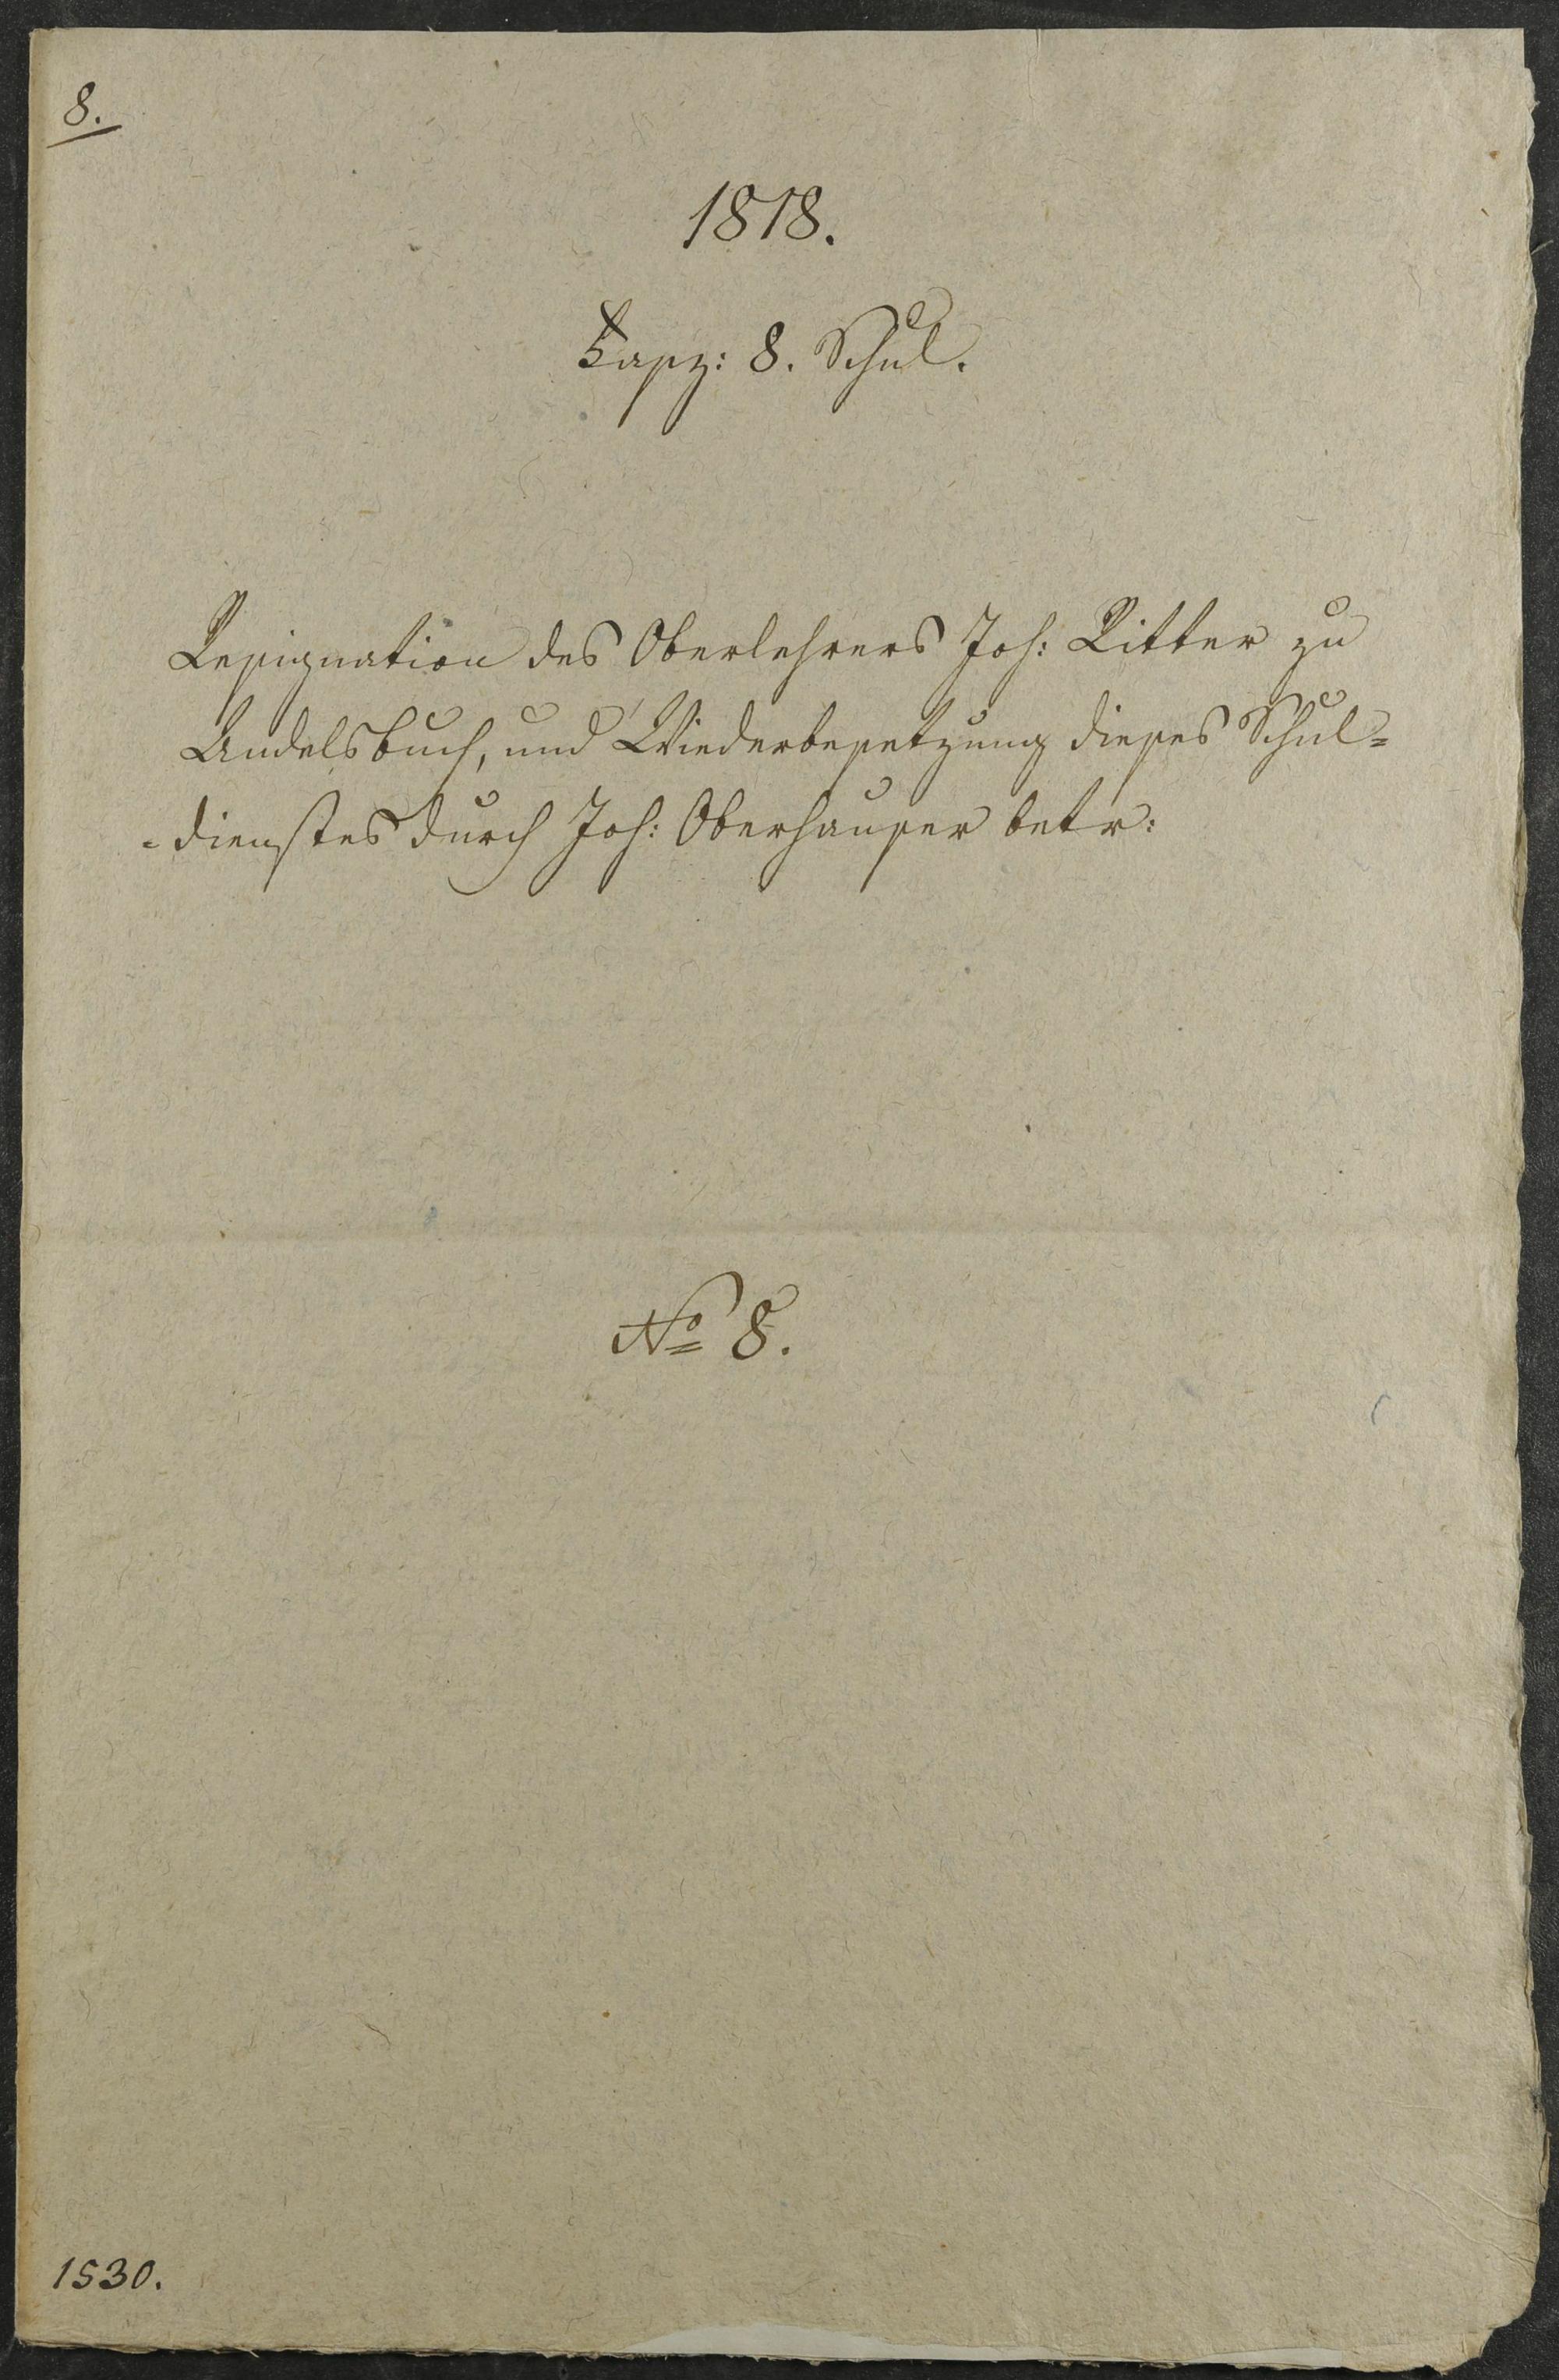 8.
1818.
Fasz: 8. Schul.
Resignation des Oberlehrers Joh: Ritter zu
Andelsbuch, und Wiederbesetzung dieses Schul=
=dienstes durch Joh: Oberhauser betr:
No 8.
1530.